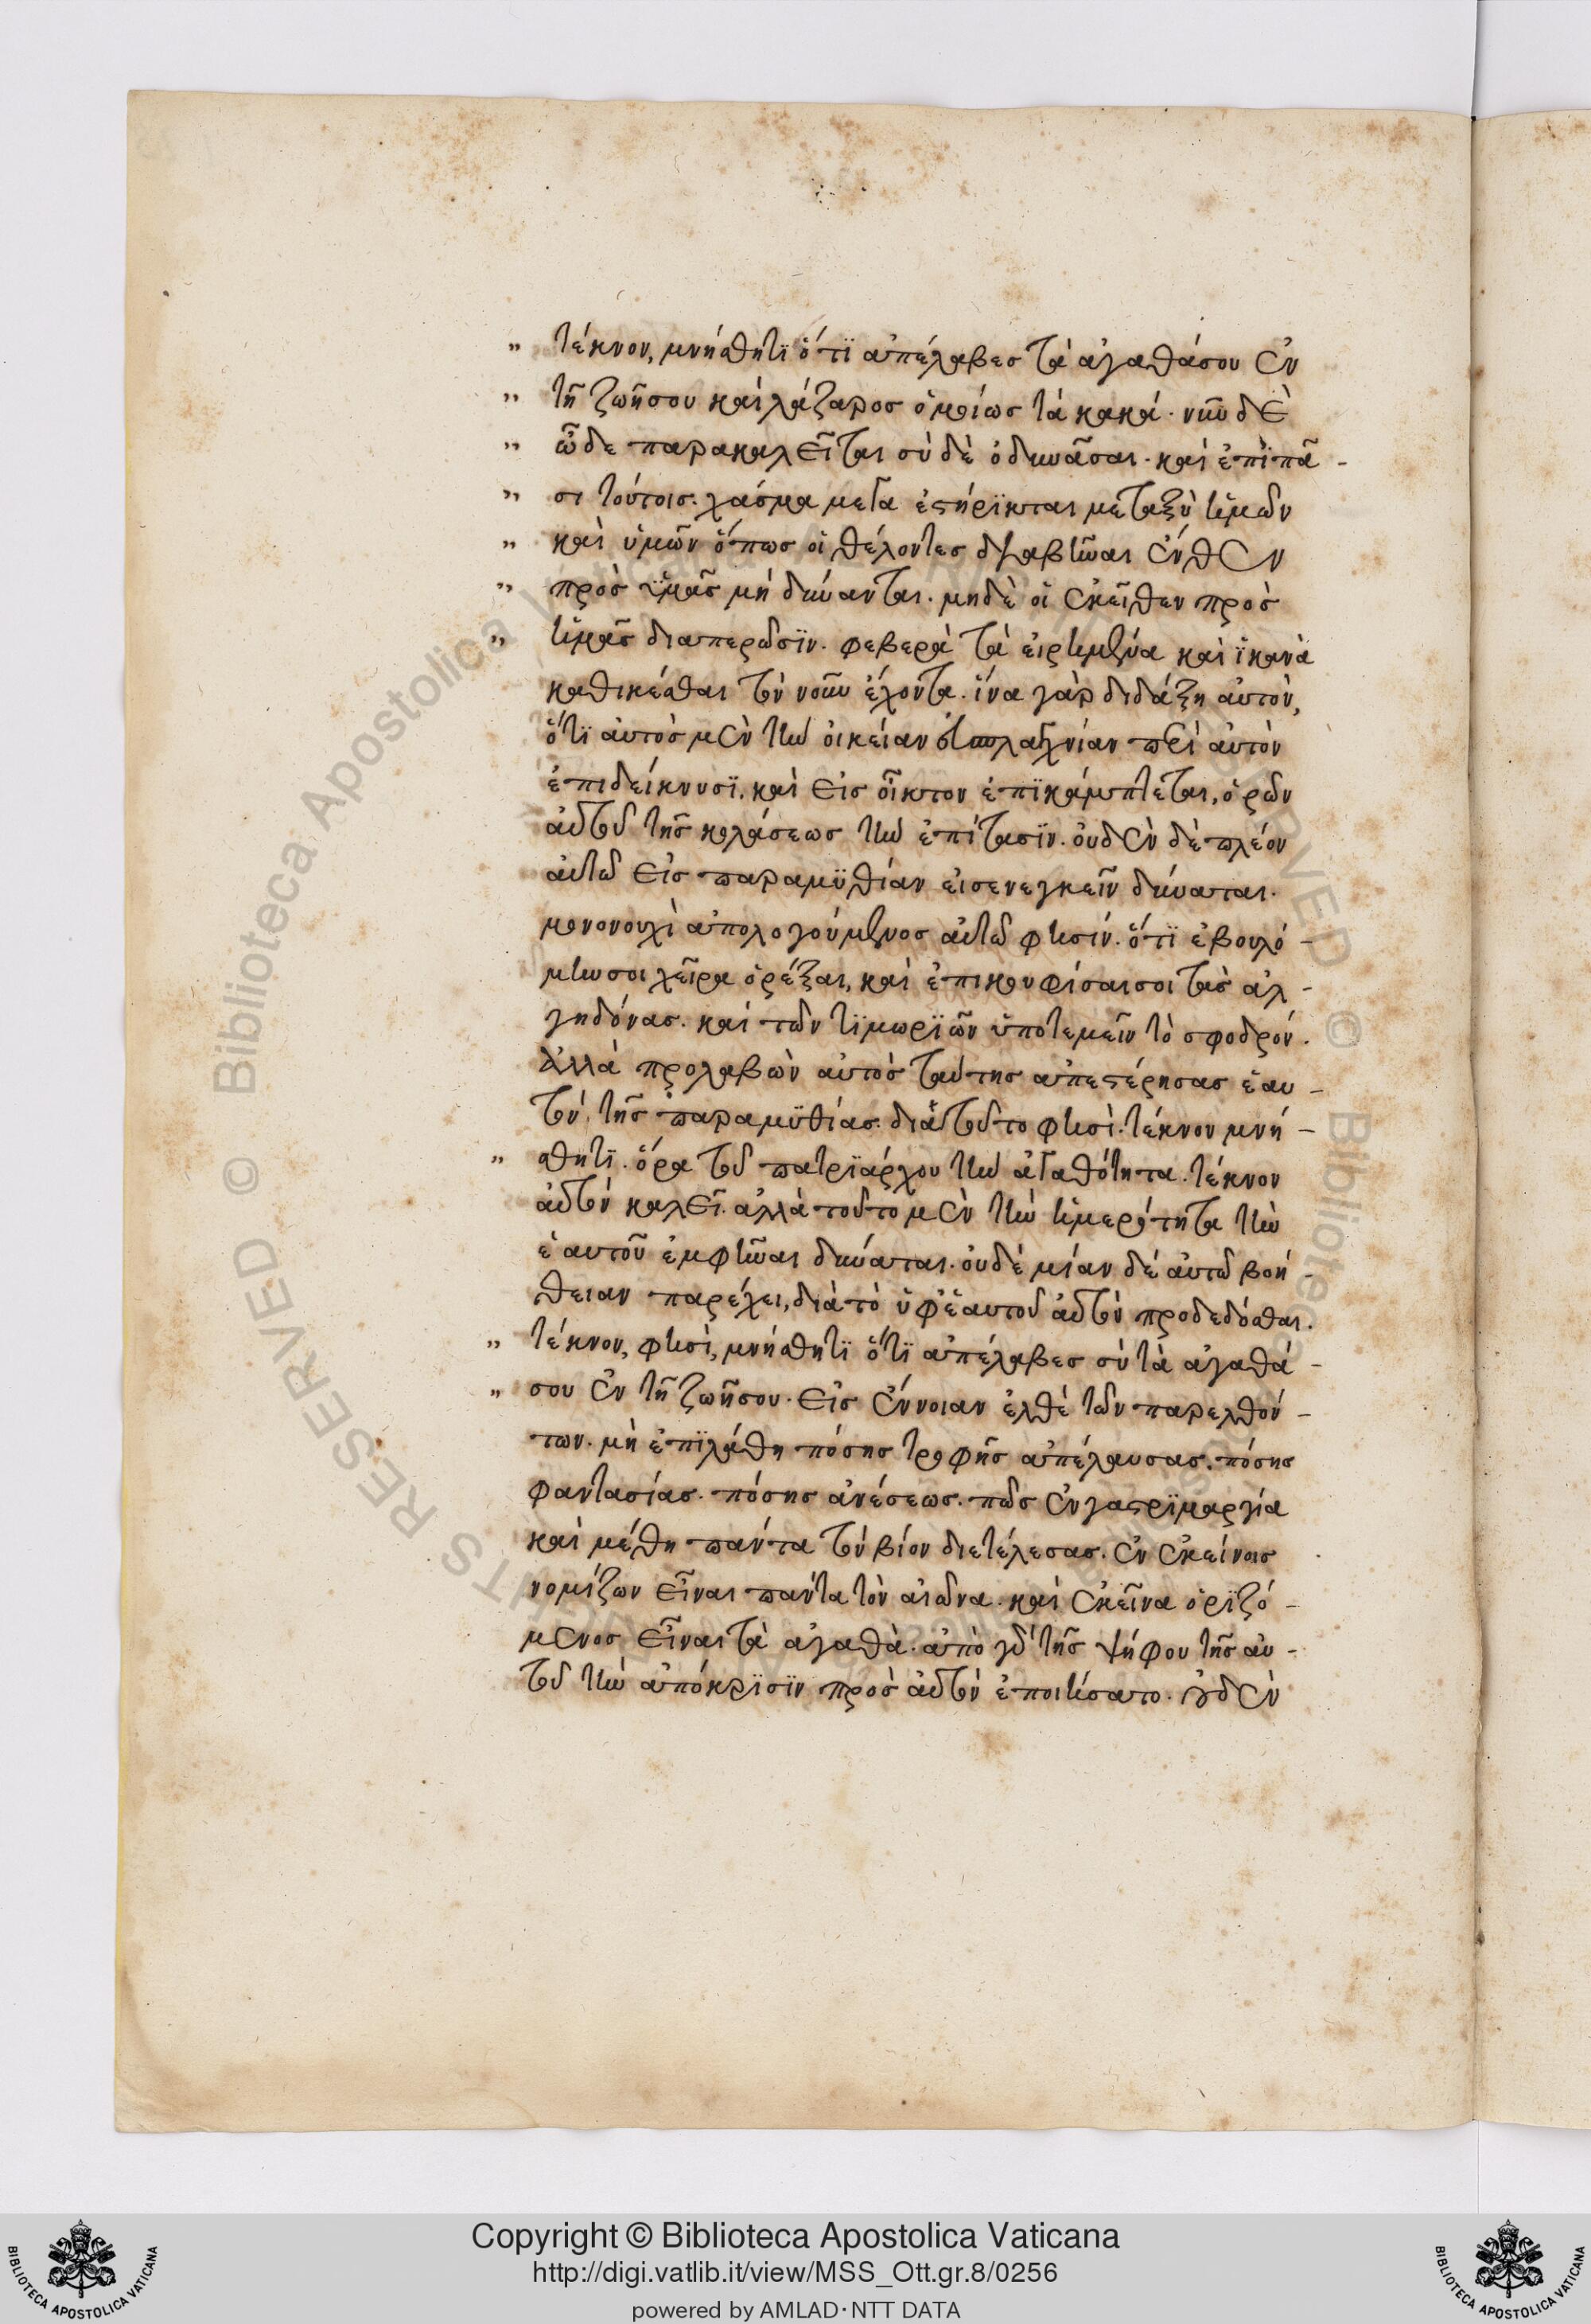 " τέκνον, μνήσθητϊ ὅτϊ ἀπέλαβες τὰ ἀγαθάσου ἐν
" τῆ ζωῆσου καὶ λάζαρος ὁμοίως τὰ κακά. νῦν δὲ
" ὧδε παρακαλεῖται σὺ δὲ ὀδυνᾶσαι. καὶ ἐπὶ πᾶ -
" σι τούτοις. χάσμα μέγα ἐστήρϊκται μεταξὺ ἡμῶν
" καὶ ὑμῶν ὅπως οἱ θέλοντες διαβῆναι ἔνθεν
" πρὸς ὑμᾶς μὴ δύνανται. μηδὲ οἱ ἐκεῖθεν πρὸς
" ἡμᾶς διαπερῶσϊν. φοβερὰ τὰ εἰρημένα καὶ ἱκανὰ
καθικέσθαι τὸν νοῦν ἔχοντα. ἵνα γὰρ διδάξη αὐτὸν,
ὅτϊ αὐτὸς μὲν τὴν οἰκείαν εὐσπλαγχνίαν περὶ αὐτὸν
ἐπιδείκνυσϊ, καὶ εἰς οἶκτον ἐπϊκάμπτεται, ὁρῶν
αὐτοῦ τῆς κολάσεως τὴν ἐπίτασϊν. οὐδὲν δὲ πλέον
αὐτῶ εἰς παραμϋθίαν εἰσενεγκεῖν δύναται.
μονονουχὶ ἀπολογούμενος αὐτῶ φησίν. ὅτϊ ἐβουλό -
μην σοι χεῖρα ὀρέξαι, καὶ ἐπικουφίσαι σοι τὰς ἀλ -
γηδόνας. καὶ τῶν τϊμωρϊῶν ὑποτεμεῖν τὸ σφοδρόν.
ἀλλὰ προλαβὼν αὐτὸς ταύτης ἀπεστέρησας ἑαυ -
τὸν τῆς παραμϋθίας. διὰ τοῦτο φησὶ. τέκνον μνή -
" σθητϊ. ὅρα τοῦ πατρϊάρχου τὴν ἀγαθότητα. τέκνον
αὐτὸν καλεῖ. ἀλλὰ τοῦτο μὲν τὴν ἡμερότητα τὴν
ἑαυτοῦ ἐμφῆναι δύναται. οὐδὲ μίαν δὲ αὐτῶ βοή -
θειαν παρέχει, διὰ τὸ ὑφ' ἑαυτοῦ αὐτὸν προδεδόσθαι.
" τέκνον, φησὶ, μνήσθητϊ ὅτϊ ἀπέλαβες σὺ τὰ ἀγαθά -
" σου ἐν τῆ ζωῆσου. εἰς ἔννοιαν ἐλθὲ τῶν παρελθόν -
των. μὴ ἐπϊλάθη πόσης τροφῆς ἀπέλαυσας. πόσης
φαντασίας. πόσης ἀνέσεως. πῶς ἐν γαστρϊμαργία
καὶ μέθη πάντα τὸν βίον διετέλεσας. ἐν ἐκείνοις
νομίζων εἶναι πάντα τὸν αἰῶνα. καὶ ἐκεῖνα ὁρϊζό -
μενος εἶναι τὰ ἀγαθὰ. ἀπὸ γὰρ τῆς ψήφου τῆς αὐ -
τοῦ τὴν ἀπόκρϊσϊν πρὸς αὐτὸν ἐποιήσατο. οὐδὲν
Copyright © Biblioteca Apostolica Vaticana
http://digi.vatlib.it/view/MSS_Ott.gr.8/0256
powered by AMLAD·NTT DATA